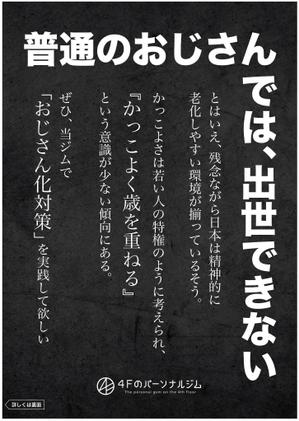 普通のおじさん
では、出世できない
とはいえ、残念ながら日本は精神的に
老化しやすい環境が揃っているそう。
かっこよさは若い人の特権のように考えられ、
『かっこよく歳を重ねる』
という意識が少ない傾向にある。
ぜひ、当ジムで
「おじさん化対策」を実践して欲しい
4Fのパーソナルジム
The personal gym on the 4th floor
詳しくは裏面